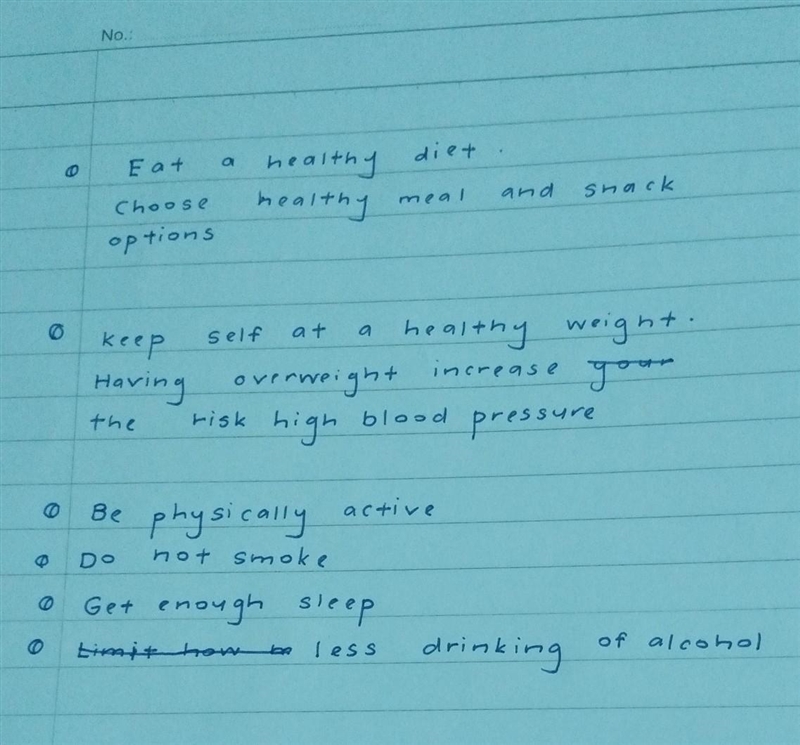 No.:
Eat a healthy diet.
Choose healthy meal and snack
options
keep self at a healthy weight.
Having overweight increase your
the risk high blood pressure
Be physically active
Do not smoke
Get enough sleep
Limit how less drinking of alcohol